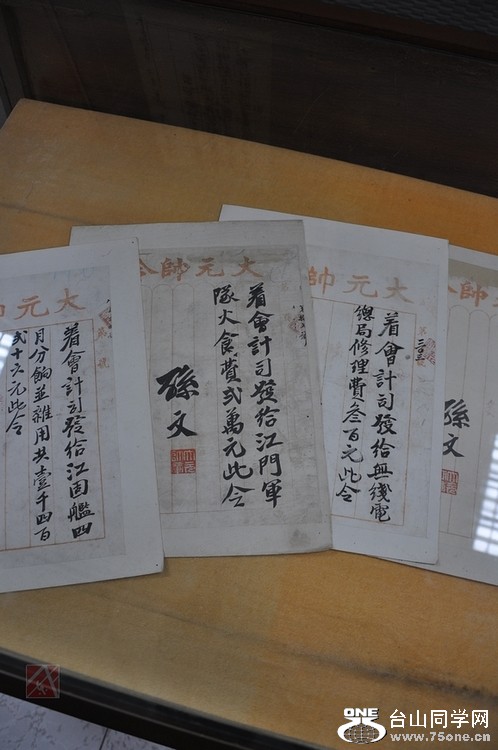 大元帥
着會計司發給江固艦四
月分餉並雜用共壹千四百
弍十六元此令
大元帥令
着會計司發給江門軍
隊火食費弍萬元此令
孫文
大元帥
着會計司發給無綫電
總局修理費叁百元此令
帥令
孫文
ONE
台山同学网
www.75one.cn